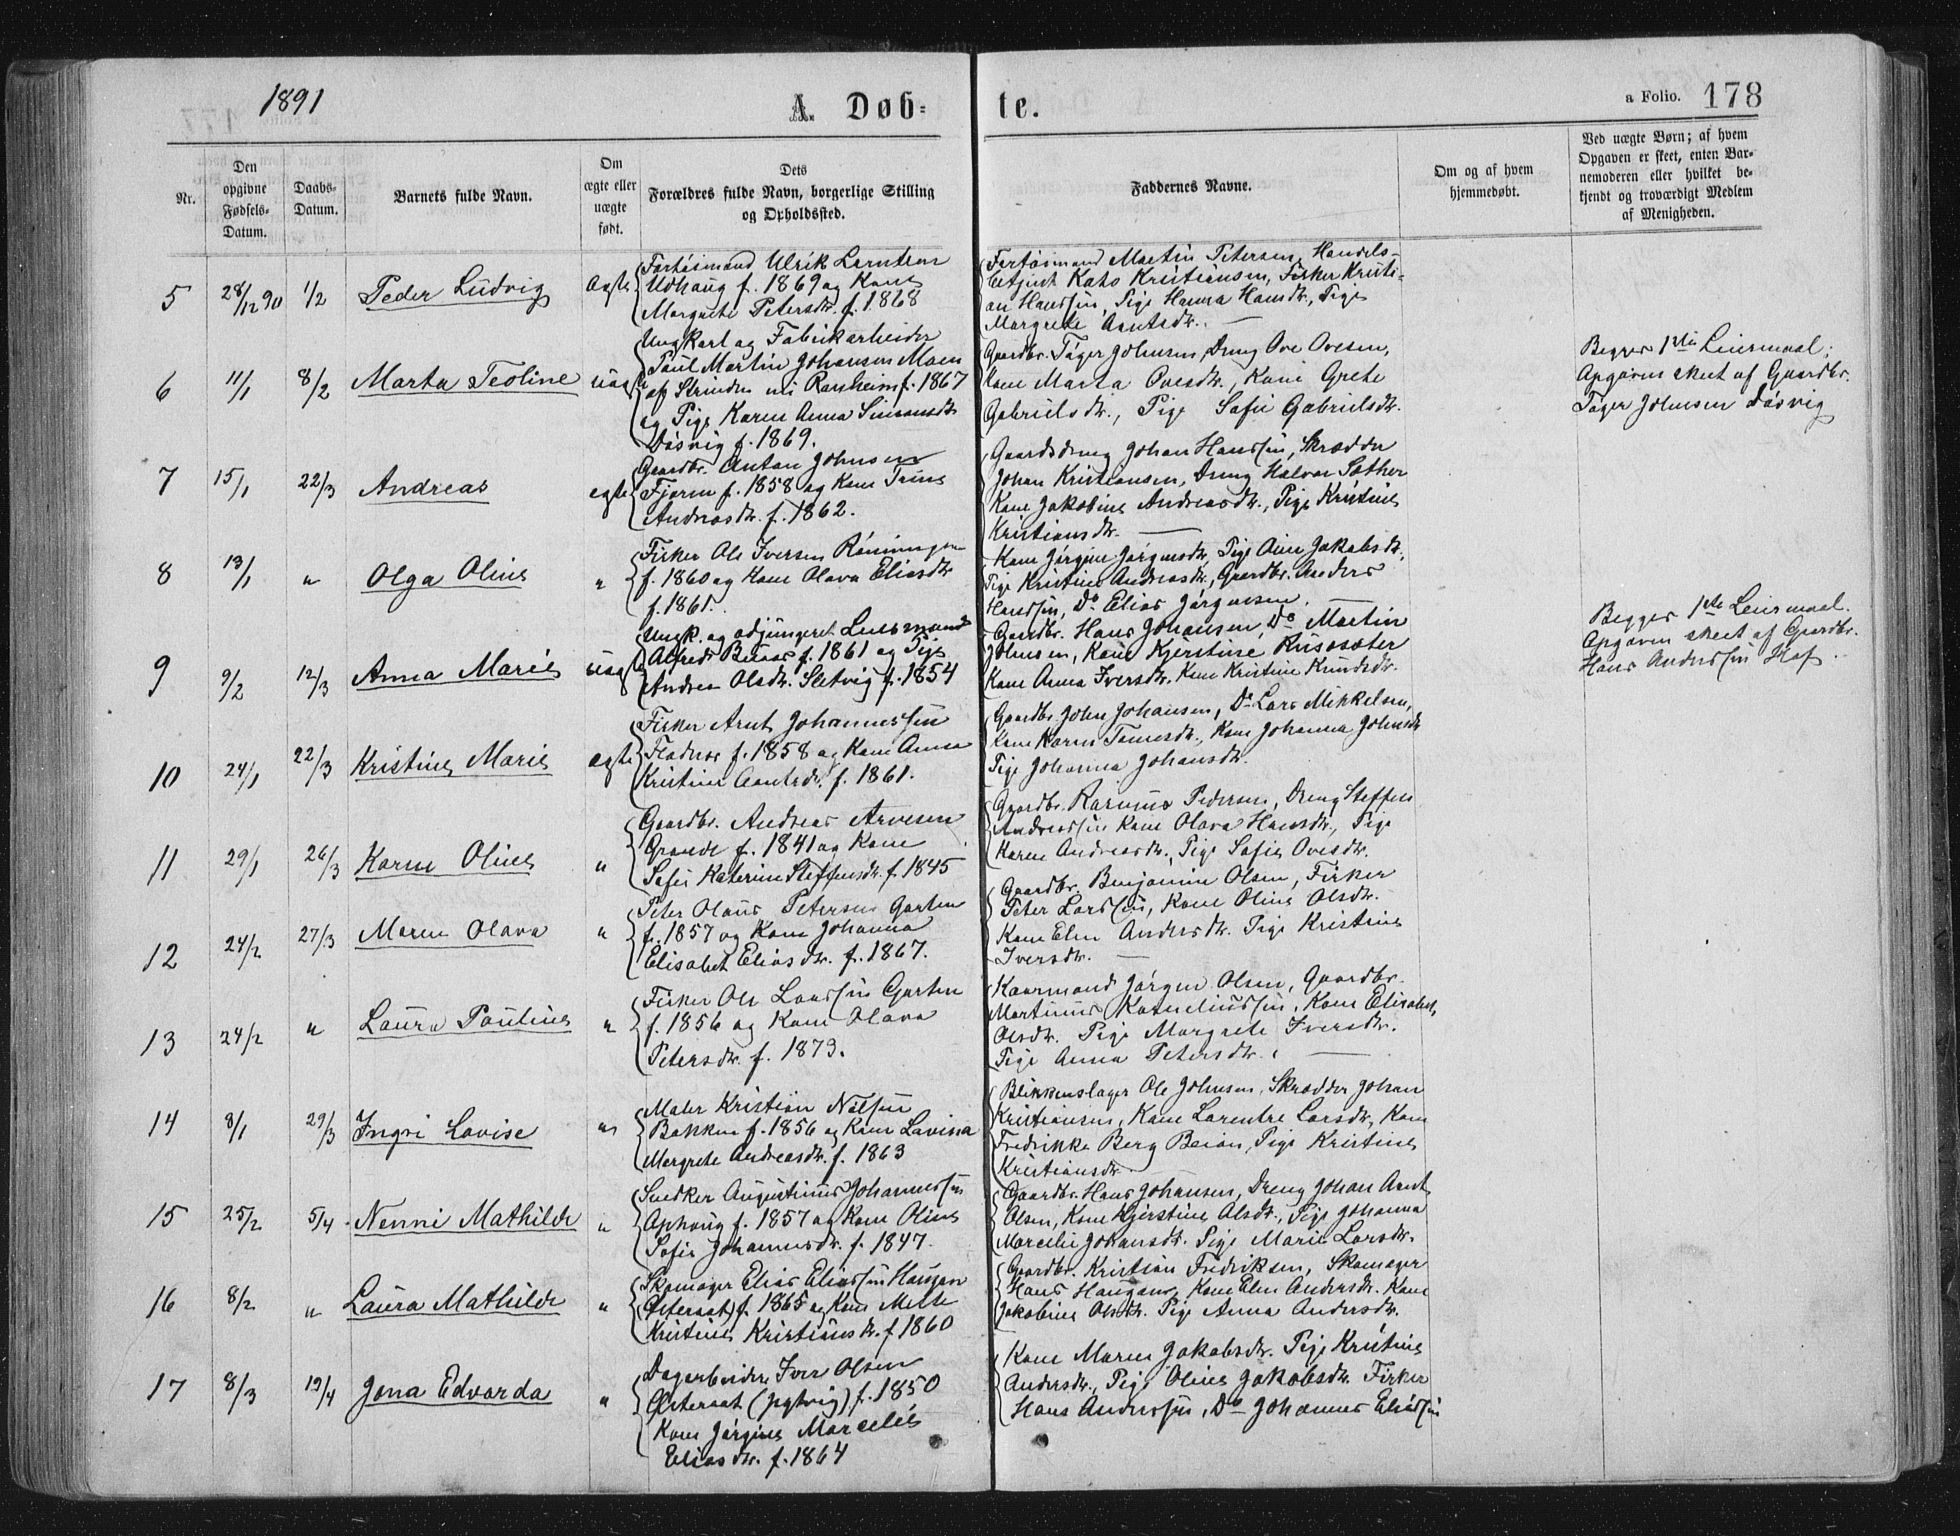 1891
A. Døb-
te.
a Folio. 178
Nr.
Den
opgivne
Fødsels-
Datum.
Daabs-
Datum.
Barnets fulde Navn.
Om
ægte eller
uægte
født.
Dets
Forældres fulde Navn, borgerlige Stilling
og Opholdssted.
Faddernes Navne.
Om og af hvem
hjemmedøbt.
Ved uægte Børn; af hvem
Opgaven er skeet, enten Bar-
nemoderen eller hvilket be-
kjendt og troværdigt Medlem
af Menigheden.
5 28/12 90 1/2 Peder Ludvig ægte
Ulrik
Udhaug f. 1869 og Kone
Margrete Petersdtr. f. 1868
Martin Petersen, Handels-
betjent Kristiansen, Fisker Kristi-
an Hansen, Pige Hanna Hansdtr., Pige
Margrete Arntsdtr.
6 11/1 8/2 Marta Teoline uægte
Ungkarl og Fabrikarbeider
Paul Martin Johansen Moen
af Strinden nu Ranheim f. 1867
og Pige Karen Anna Simonsdtr
Døsvig f. 1869.
Gaardbr. Tøger Johnsen, Dreng Ove Ovesen,
Kone Marta Ovesdtr., Kone Grete
Gabrielsdtr., Pige Sofie Gabrielsdtr.
Begges 1ste Leiermaal;
Opgaven skeet af Gaardbr.
Tøger Johnsen Døsvig
7 15/1 22/3 Andreas ægte
Gaardbr. Anton Johnsen
f. 1858 og Kone Trine
Andreasdtr. f. 1862.
Gaardsdreng Johan Hansen, Skrædder
Johan Kristiansen, Dreng Halvor Sæther
Kone Jakobine Andreasdtr., Pige Kristine
Kristiansdtr.
8 13/1 " Olga Oline "
Fisker Ole Iversen Rønningen
f. 1860 og Kone Olava Eliasdtr
f. 1861.
Kone Jørgine Jørgensdtr, Pige Jakobsdtr,
Pige Kristine Andreasdtr., Gaardbr. Anders
Hansen, Do Elias Jørgensen.
9 9/2 12/3 Anna Marie uægte
Ungk. og adjungeret Lensmand
Alfred f. 1861 og Pige
Andrea Olsdtr. Sletvig f. 1854
Gaardbr. Hans Johansen, Do Martin
Johnsen, Kone Kjerstine Rusesæter
Kone Anna Iversdtr. Kone Kristine Knudsdtr.
Begges 1ste Leiermaal.
Opgaven skeet af Gaardbr.
Hans Andersen Hof.
10 24/1 22/3 Kristine Marie ægte
Fisker Arnt Johannessen
Fladnes f. 1858 og Kone Anna
Kristine Arntsdtr. f. 1861.
Gaardbr. John Johansen, Do Lars Mikkelsen,
Kone Karen Tomesdtr., Kone Johanna Johnsdtr
Pige Johanna Johansdtr.
11 29/1 26/3 Karen Oline "
Gaardbr. Andreas Arvesen
Grande f. 1841 og Kone
Sofie Katerine Steffensdtr. f. 1845
Gaardbr. Rasmus Pedersen, Dreng Steffen
Andreassen Kone Olava Hansdtr., Pige
Karen Andreasdtr., Pige Sofie Ovesdtr.
12 24/2 27/3 Maren Olava "
Peter Olaus Petersen Garten
f. 1857 og Kone Johanna
Elisabet Eliasdtr. f. 1867.
Gaardbr. Benjamin Olsen, Fisker
Peter Larssen, Kone Oline Olsdtr.
Kone Elen Andersdtr. Pige Kristine
Iversdtr.
13 24/2 " Laura Pauline "
Fisker Ole Larssen Garten
f. 1856 og Kone Olava
Petersdtr. f. 1873.
Kaarmand Jørgen Olsen, Gaardbr.
Martinus Korneliussen, Kone Elisabet
Olsdtr. Pige Margrete Iversdtr.
Pige Anna Petersdtr.
14 8/1 29/3 Ingri Lovise "
Maler Kristian Nilsen
Bakken f. 1856 og Kone Lavina
Margrete Andreasdtr. f. 1863
Blikkenslager Ole Johnsen, Skrædder Johan
Kristiansen, Kone Larentse Larsdtr, Kone
Fredrikke Berg Beian, Pige Kristine
Kristiansdtr
15 25/2 5/4 Nenni Mathilde "
Snedker Augustinus Johannessen
Ophaug f. 1857 og Kone Oline
Sofie Johannesdtr. f. 1847.
Gaardbr. Hans Johansen, Dreng Johan Arnt
Olsen, Kone Kjerstine Olsdtr., Pige Johanna
Marselie Johansdtr. Pige Marie Larsdtr.
16 8/2 " Laura Mathilde "
Skomager Elias Eliassen Haugen
(Østeraat) f. 1865 og Kone Mette
Kristine Kristiansdtr. f 1860
Gaardbr. Kristian Fredriksen, Skomager
Hans Haugan, Kone Elen Andersdtr. Kone
Jakobine Olsdtr. Pige Anna Andersdtr.
17 8/3 12/4 Jona Edvarda "
Dagarbeider Iver Olsen
Østeraat f. 1850
Kone Jørgine Marcelie
Eliasdtr. f. 1864
Kone Maren Jakobsdtr. Pige Kristine
Andersdtr., Pige Oline Jakobsdtr. Fisker
Hans Anderssen, Do Johannes Eliassen